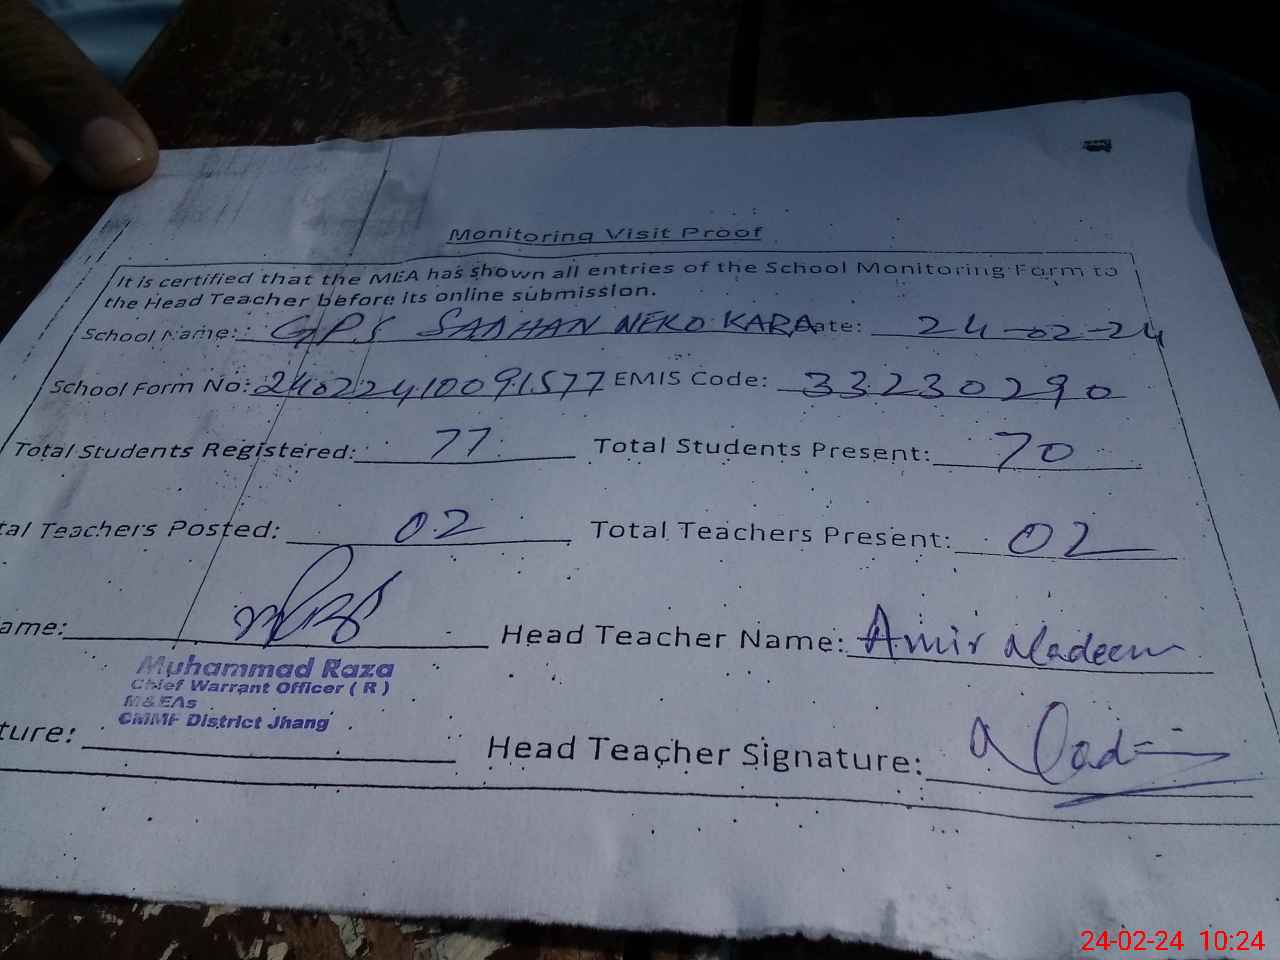 Monitoring Visit Proof
It is certified that the MEA has shown all entries of the School Monitoring Form to
the Head Teacher before its online submission.
School Name: GPS SADHAN NEKO KARA ate: 24-02-24
School Form No: 24022410091577 EMIS Code: 33230290
Total Students Registered: 77 Total Students Present: 70
tal Teachers Posted: 02 Total Teachers Present: 02
ame: Head Teacher Name: Amir Nadeem
Muhammad Raza
Chief Warrant Officer ( R )
M&EAs
CMMF District Jhang
ture: Head Teacher Signature:
24-02-24 10:24